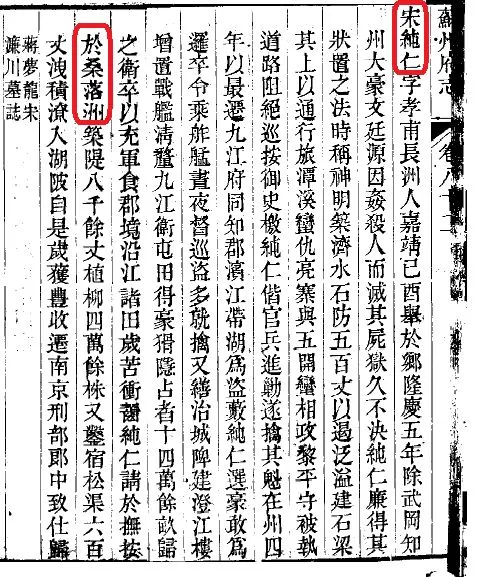 蘇州府志 卷八十二
宋純仁字孝甫長洲人嘉靖己酉舉於鄉隆慶五年除武岡知
州大豪文廷源因姦殺人而滅其屍獄久不決純仁廉得其
狀置之法時稱神明築濟水石防五百丈以遏泛溢建石梁
其上以通行旅潭溪蠻仇亮寨與五開蠻相攻黎平守被執
道路阻絕巡按御史檄純仁偕官兵進勦遂擒其魁在州四
年以最遷九江府同知郡濱江帶湖為盜藪純仁選豪敢為
邏卒令乘舴艋晝夜督巡盜多就擒又繕治城陴建澄江樓
增置戰艦淸釐九江衛屯田得豪猾隱占者十四萬餘畝歸
之衛卒以充軍食郡境沿江諸田歲苦衝齧純仁請於撫按
於桑落洲築隄八千餘丈植柳四萬餘株又鑿宿松渠六百
丈洩積潦入湖陂自是歲獲豐收遷南京刑部郎中致仕歸
蔣夢龍宋
濂川墓誌